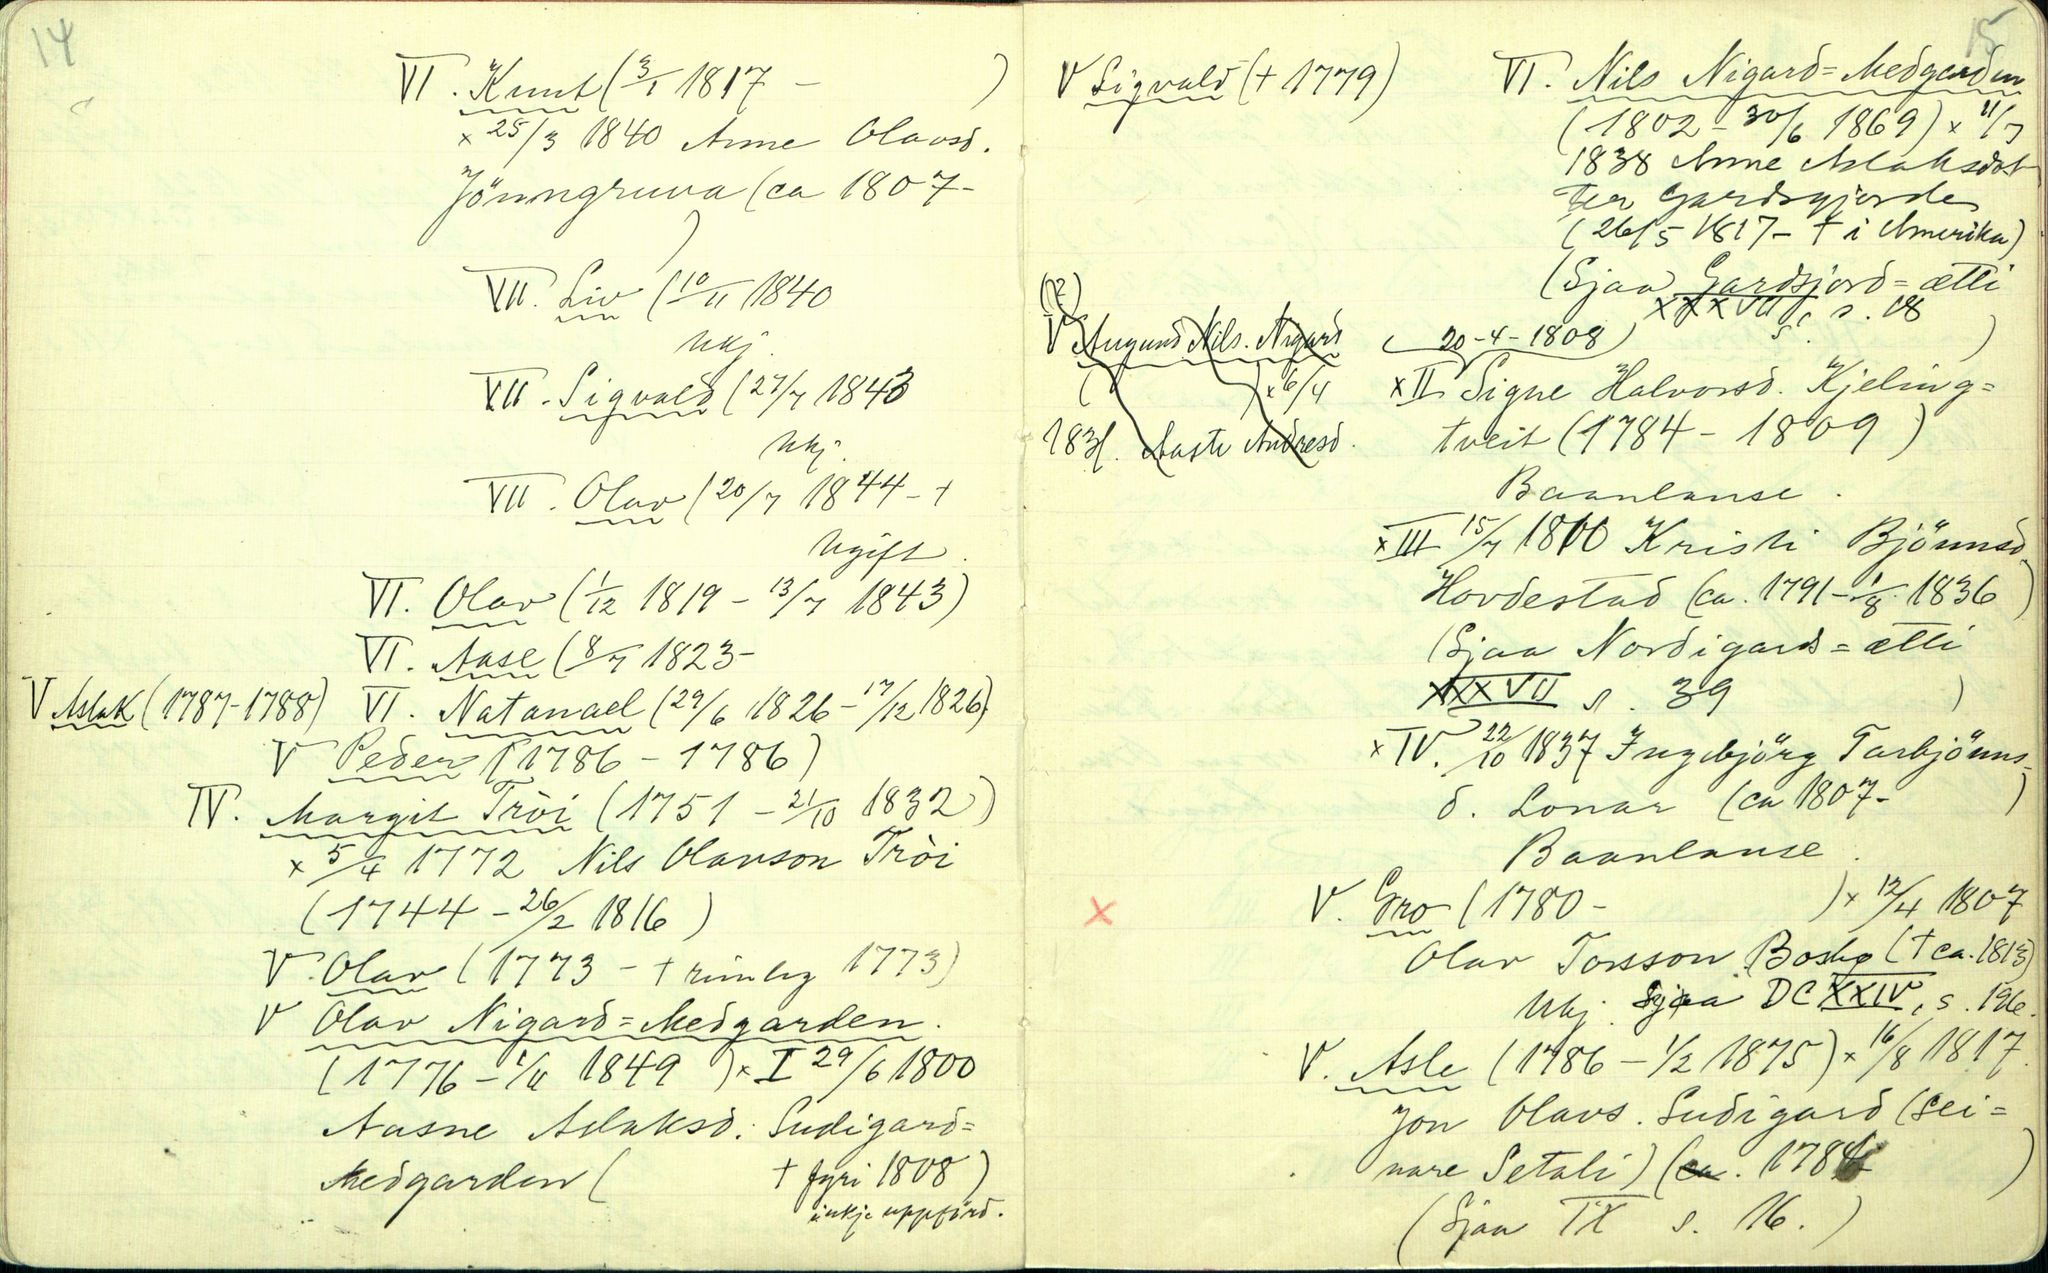 14
VI. Knut (3/1 1817 - )
x 25/3 1840 Anne Olavsd.
Jönngruva (ca 1807-
)
VII. Liv (10/11 1840
Ukj.
VII. Sigvald (27/7 1843
Ukj.
VII. Olav (20/7 1844 - +
Ugift.
VI. Olav (1/12 1819 - 13/7 1843)
VI. Aase (8/7 1823-
V Aslak (1787-1788) VI. Natanael (29/6 1826 - 17/12 1826).
V Peder (1786 - 1786)
IV. Margit Tròi (1751 - 21/10 1832)
x 5/4 1772 Nils Olavson Tròi
(1744 - 26/2 1816)
V. Olav (1773 - + 1773)
V Olav Nigard=Medgarden.
(1776 - 1/11 1849 ) x I 29/6 1800
Aasne Aslaksd. Sudigard=
Medgarden ( + fyri 1808)
inkje uppförd.
15
V Sigvald (+ 1779)
VI. Nils Nigard=Medgarden
(1802 - 30/6 1869) x 11/7
1838 Anne Aslaksdot
ter Gardsgjorde
(26/5 1817 - + i Amerika)
(Sjaa Gardsjord=ætti
XXXVII s. 18
)
(2)
V Augund Nils. Nigard
( ) x 6/4
183 . Aaste Andresd.
( 20-4-1808 )
x II Signe Halvorsd. Kjeling=
tveit (1784 - 1809)
Baanlause.
x III 15/7 1810 Kristi Bjönnsd
Hovdestad (ca. 1791 - 1/8 1836)
(Sjaa Nordigards=ætti
XXXVII s. 39 )
x IV. 22/10 1837 Ingebjörg Tarbjönns-
d. Lonar (ca 1807- )
Baanlause.
x
V. Gro (1780 - ) x 12/4 1807
Olav Torsson Bosbø (+ ca. 1813)
Ukj. Sjaa DCXXIV, s. 196.
V. Asle (1786 - 1/2 1875) x 16/8 1817.
Jon Olavs. Sudigard (sei=
nare Setali) (ca. 1784 )
(Sjaa IX s. 16.)